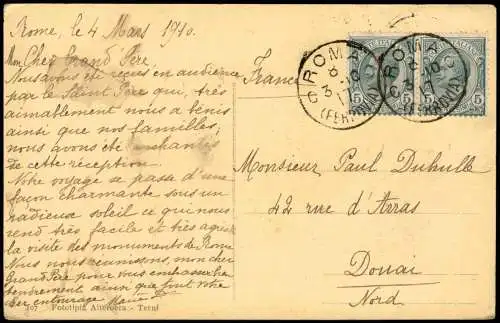 Rome, le 4 Mars 1910.
Mon Cher Grand' Père
Nous avons été reçus en audience
par le Saint Père qui, très
aimablement nous a bénis
ainsi que nos familles;
nous avons été enchantés
de cette réception.
Notre voyage se passe d'une
façon charmante sous un
radieux soleil ce qui nous
rend très facile et très agré
la visite des monuments de Rome
Nous nous réunissons, mon cher
Grand Père pour vous embrasser bien
tendrement ainsi que tout votre
cher entourage Marie
307 Fototipia Alterocca - Terni
France
ROMA
8
3-10
17
(FERROVIA)
ROMA
8
3-10
17
(FERROVIA)
5 5
5 5
Monsieur Paul Duhulle
42 rue d'Arras
Douai
Nord